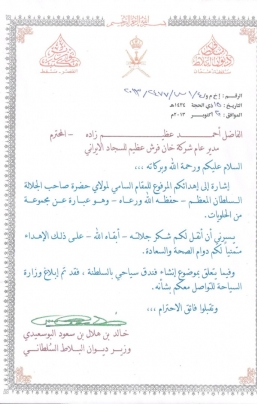 الرقم :
التاريخ : ذي الحجة ١٤٣٤
الموافق : أكتوبر ٢٠١٣م
الفاضل أحمد عظيم زاده - المحترم
مدير عام شركة خان فرش عظيم للسجاد الإيراني
السلام عليكم ورحمة الله وبركاته ...
إشارة إلى إهدائكم المرفوع للمقام السامي لمولاي حضرة صاحب الجلالة
السلطان المعظم - حفظه الله ورعاه - وهو عبارة عن مجموعة من
الحلويات.
يسرني أن أنقل لكم شكر جلالته - أبقاه الله - على ذلك الإهداء
متمنيا لكم دوام الصحة والسعادة.
وفيما يتعلق بموضوع إنشاء فندق سياحي بالسلطنة ، فقد تم إبلاغ وزارة
السياحة للتواصل معكم بشأنه.
وتقبلوا فائق الاحترام ...
خالد بن هلال بن سعود البوسعيدي
وزير ديوان البلاط السلطاني